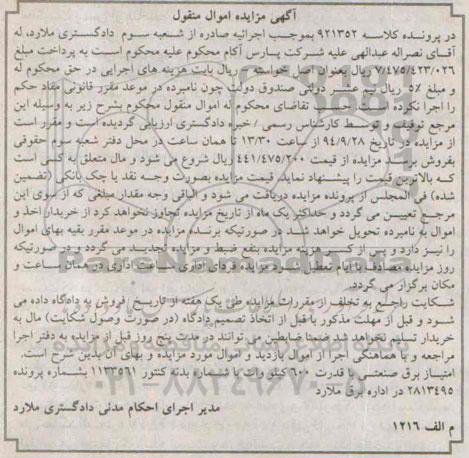 آگهی مزایده اموال منقول
در پرونده کلاسه ۹۲۱۳۵۲ بموجب اجرائیه صادره از شعبه سوم دادگستری ملارد، له
آقای نصراله عبدالهی علیه شرکت پارس آکام محکوم علیه محکوم است به پرداخت مبلغ
۷/۴۷۵/۴۲۳/۰۲۶ ریال بعنوان اصل خواسته و ریال بابت هزینه های اجرایی در حق محکوم له
و مبلغ ۵٪ ریال نیم عشر دولتی صندوق دولت چون نامبرده در موعد مقرر قانونی مفاد حکم
را اجرا نکرده است و حسب تقاضای محکوم له اموال منقول محکوم بشرح زیر به وسیله این
مرجع توقیف و توسط کارشناس رسمی / خبره دادگستری ارزیابی گردیده است و مقرر است
از مزایده در تاریخ ۹۴/۹/۲۸ از ساعت ۱۳/۳۰ تا همان ساعت در محل دفتر شعبه سوم حقوقی
بفروش برسد مزایده از قیمت ۴۴۱/۴۷۵/۲۰۰ ریال شروع می شود و مال متعلق به کسی است
که بالاترین قیمت را پیشنهاد نماید. قیمت مزایده بصورت وجه نقد یا چک بانکی (تضمین
شده) فی المجلس از برنده مزایده دریافت می شود و الباقی وجه مقدار مبلغی که از سوی این
مرجع تعیین می گردد و حداکثر یک ماه از تاریخ مزایده تجاوز نخواهد کرد از خریدار اخذ و
اموال به نامبرده تحویل خواهد شد در صورتیکه برنده مزایده در موعد مقرر بقیه بهای اموال
را نپردازد پس از کسر هزینه مزایده بنفع ضبط و مزایده تجدید می گردد و در صورتیکه
روز مزایده مصادف با ایام تعطیل شود مزایده فردای اداری ساعت اداری در همان ساعت و
مکان برگزار می گردد.
شکایت راجع به تخلف از مقررات مزایده طی یک هفته از تاریخ فروش به دادگاه داده می
شود و قبل از مهلت مذکور یا قبل از اتخاذ تصمیم دادگاه (در صورت وصول شکایت) مال به
خریدار تسلیم نخواهد شد ضمنا متقاضیان می توانند در مدت پنج روز قبل از مزایده به دفتر اجرا
مراجعه و با هماهنگی اجرا از اموال بازدید و اموال مورد مزایده و بهای آن بدین شرح است.
امتیاز برق صنعتی با قدرت ۶۰۰ کیلو وات با شماره بدنه کنتور ۱۱۳۳۵۶۱ بشماره پرونده
۲۸۱۳۴۹۵ در اداره برق ملارد
مدیر اجرای احکام مدنی دادگستری ملارد
م الف ۱۲۱۶
ParsNamadData
۰۲۱-۸۸۳۴۹۶۷۰-۵